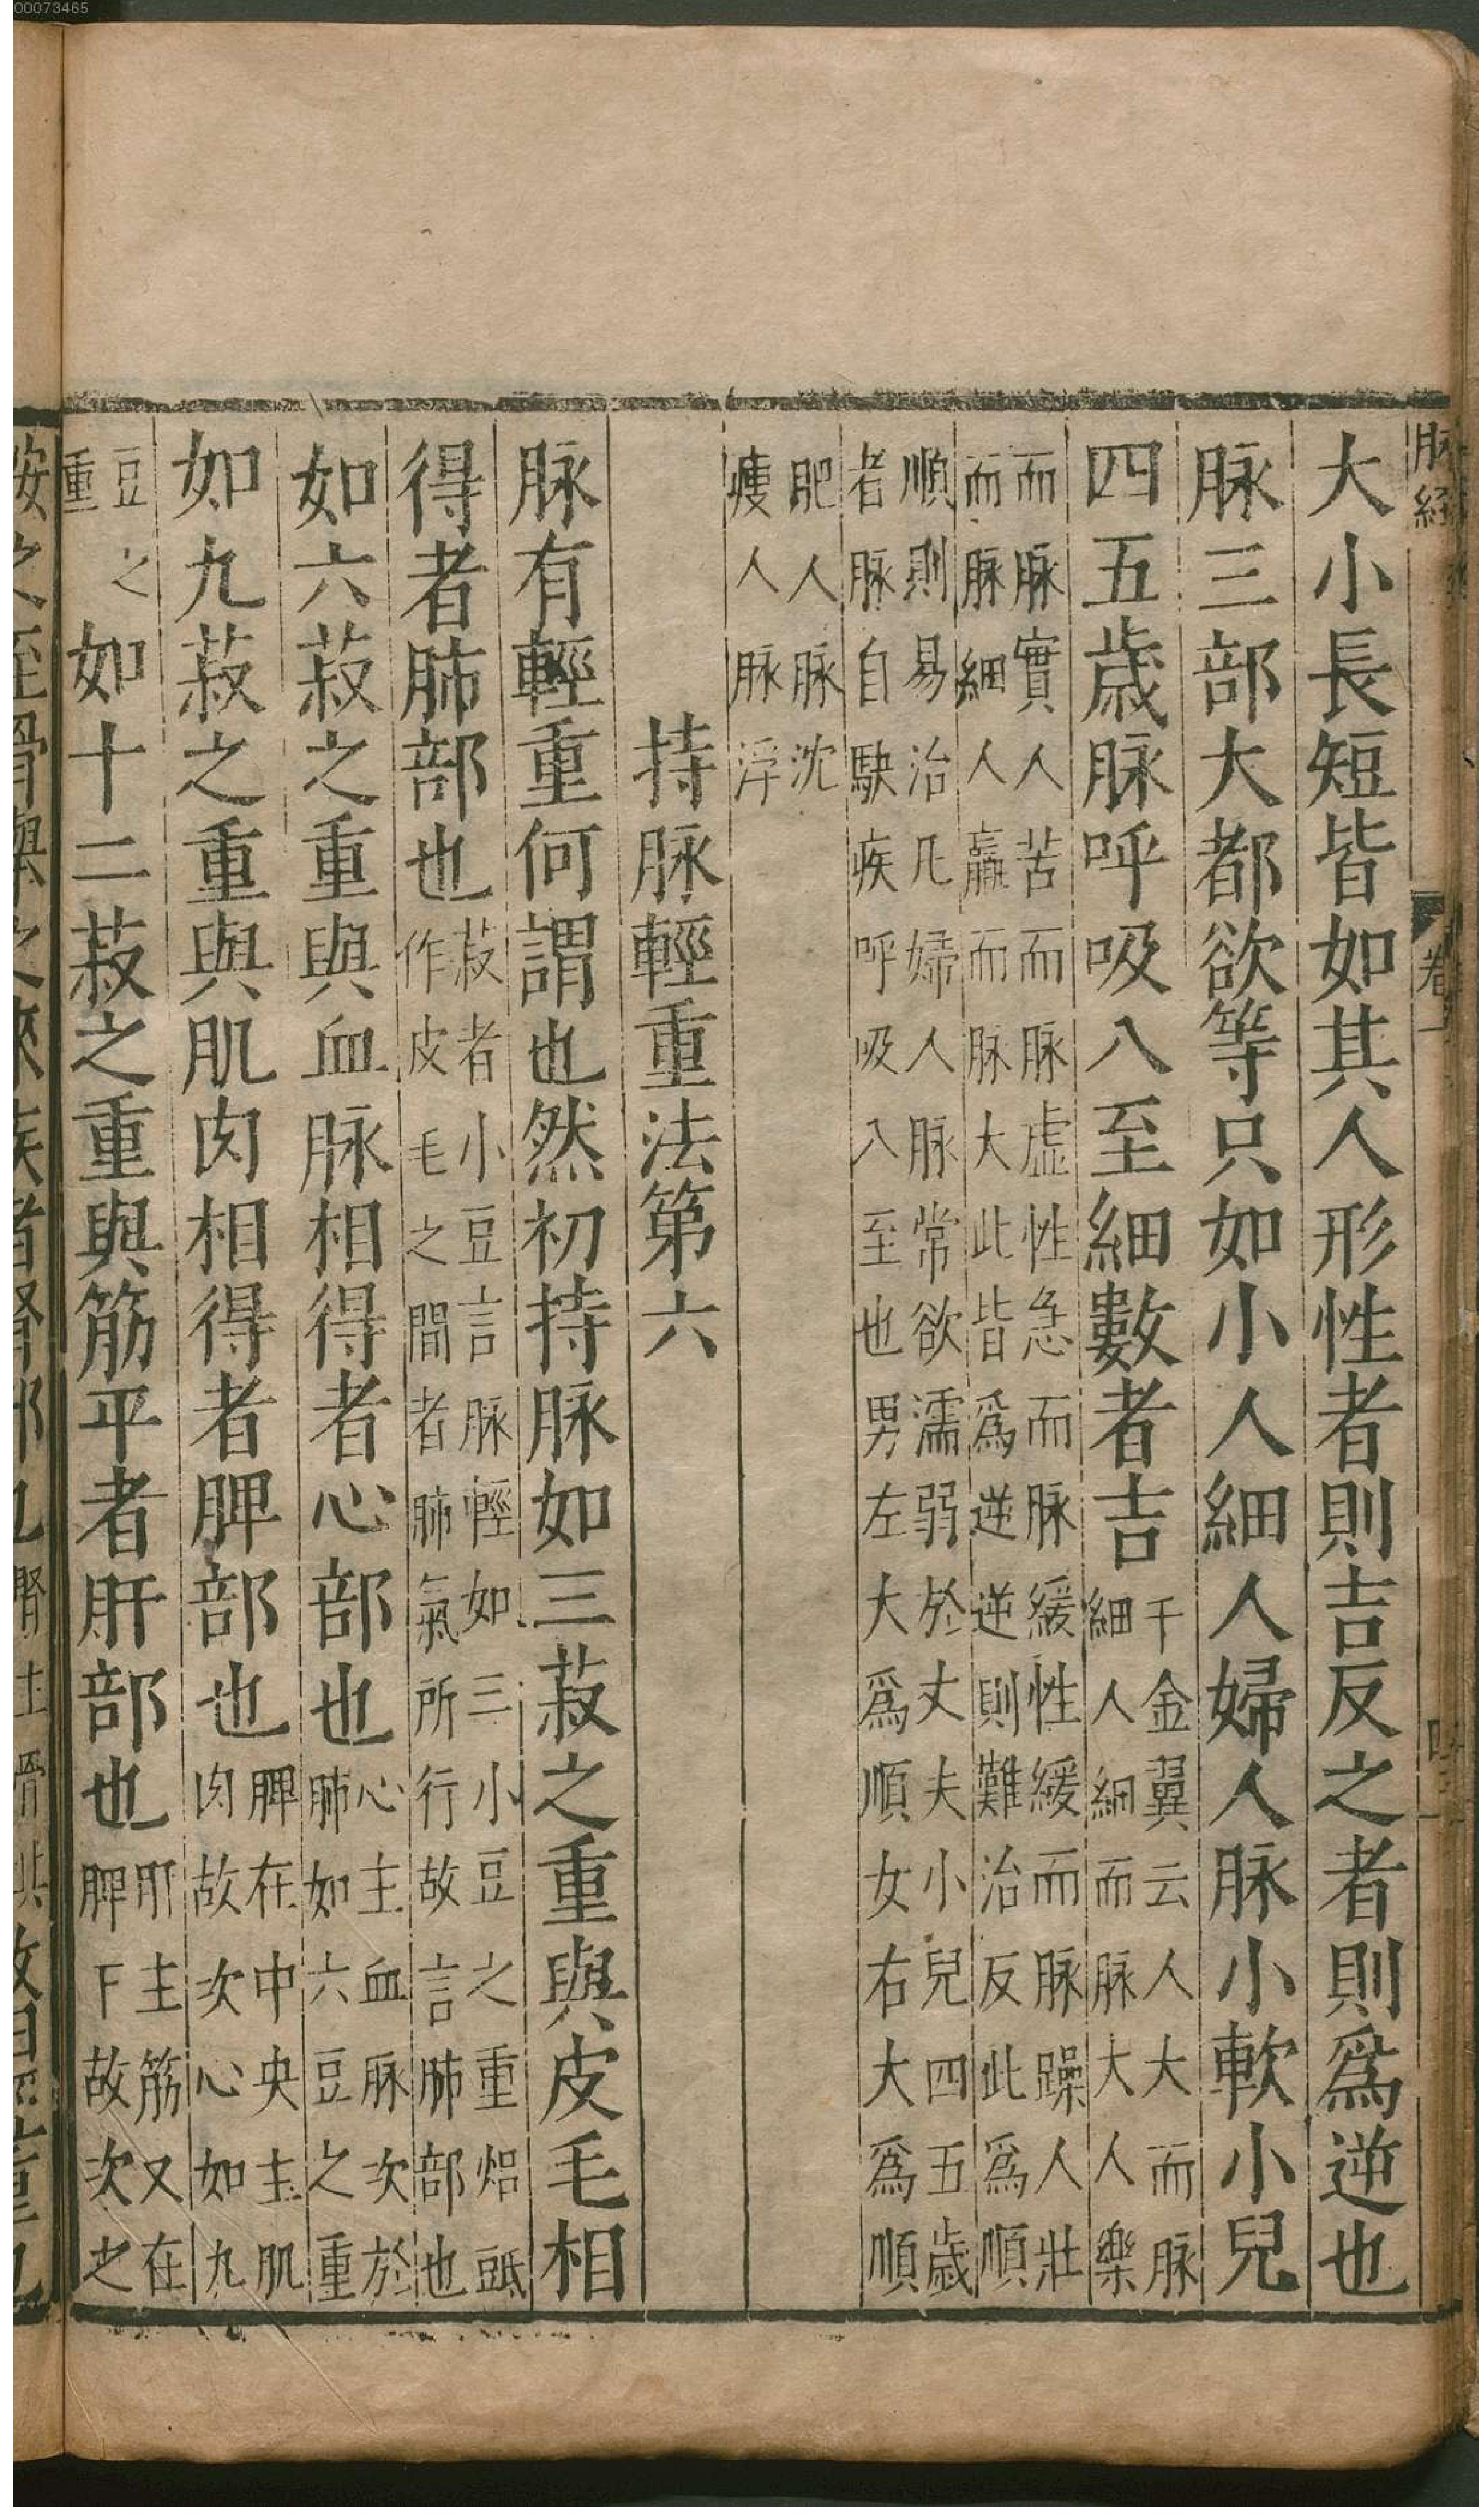 00073465
脉經
卷一
大小長短皆如其人形性者則吉反之者則爲逆也
脉三部大都欲等只如小人細人婦人脉小軟小兒
四五歳脉呼吸八至細數者吉
千金翼云人大而脉
細人細而脉大人樂
而脉實人苦而脉虛性急而脉緩性緩而脉躁人壯
而脉細人羸而脉大此皆爲逆逆則難治反此爲順
順則易治凡婦人脉常欲濡弱於丈夫小兒四五歲
者脉自駃疾呼吸八至也男左大爲順女右大爲順
肥人脉沈
瘦人脉浮
持脉輕重法第六
脉有輕重何謂也然初持脉如三菽之重與皮毛相
得者肺部也
菽者小豆言脉輕如三小豆之重
作皮毛之間者肺氣所行故言肺部也
如六菽之重與血脉相得者心部也
心主血脉次於
肺如六豆之重
如九菽之重與肌肉相得者脾部也
脾在中央主肌
肉故次心如九
豆之
重
如十二菽之重與筋平者肝部也
肝主筋又在
脾下故次之